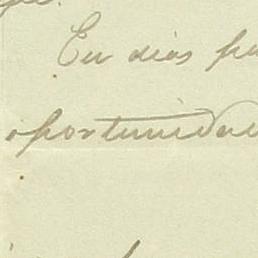 En dias pa
oportunidad